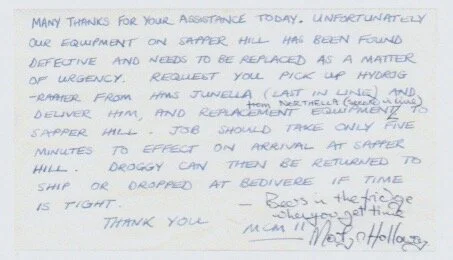 MANY THANKS FOR YOUR ASSISTANCE TODAY. UNFORTUNATELY
OUR EQUIPMENT ON SAPPER HILL HAS BEEN FOUND
DEFECTIVE AND NEEDS TO BE REPLACED AS A MATTER
OF URGENCY. REQUEST YOU PICK UP HYDROG
-RAPHER FROM HMS JUNELLA (LAST IN LINE) AND
from NORTHELLA (second in line)
DELIVER HIM, AND REPLACEMENT EQUIPMENT TO
SAPPER HILL. JOB SHOULD TAKE ONLY FIVE
MINUTES TO EFFECT ON ARRIVAL AT SAPPER
HILL. DROGGY CAN THEN BE RETURNED TO
SHIP OR DROPPED AT BEDIVERE IF TIME
IS TIGHT. — Beers in the fridge
when you get time
THANK YOU MCM 11 Holloway